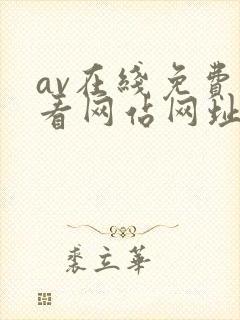 av在线免费
看网站网址
裘立华